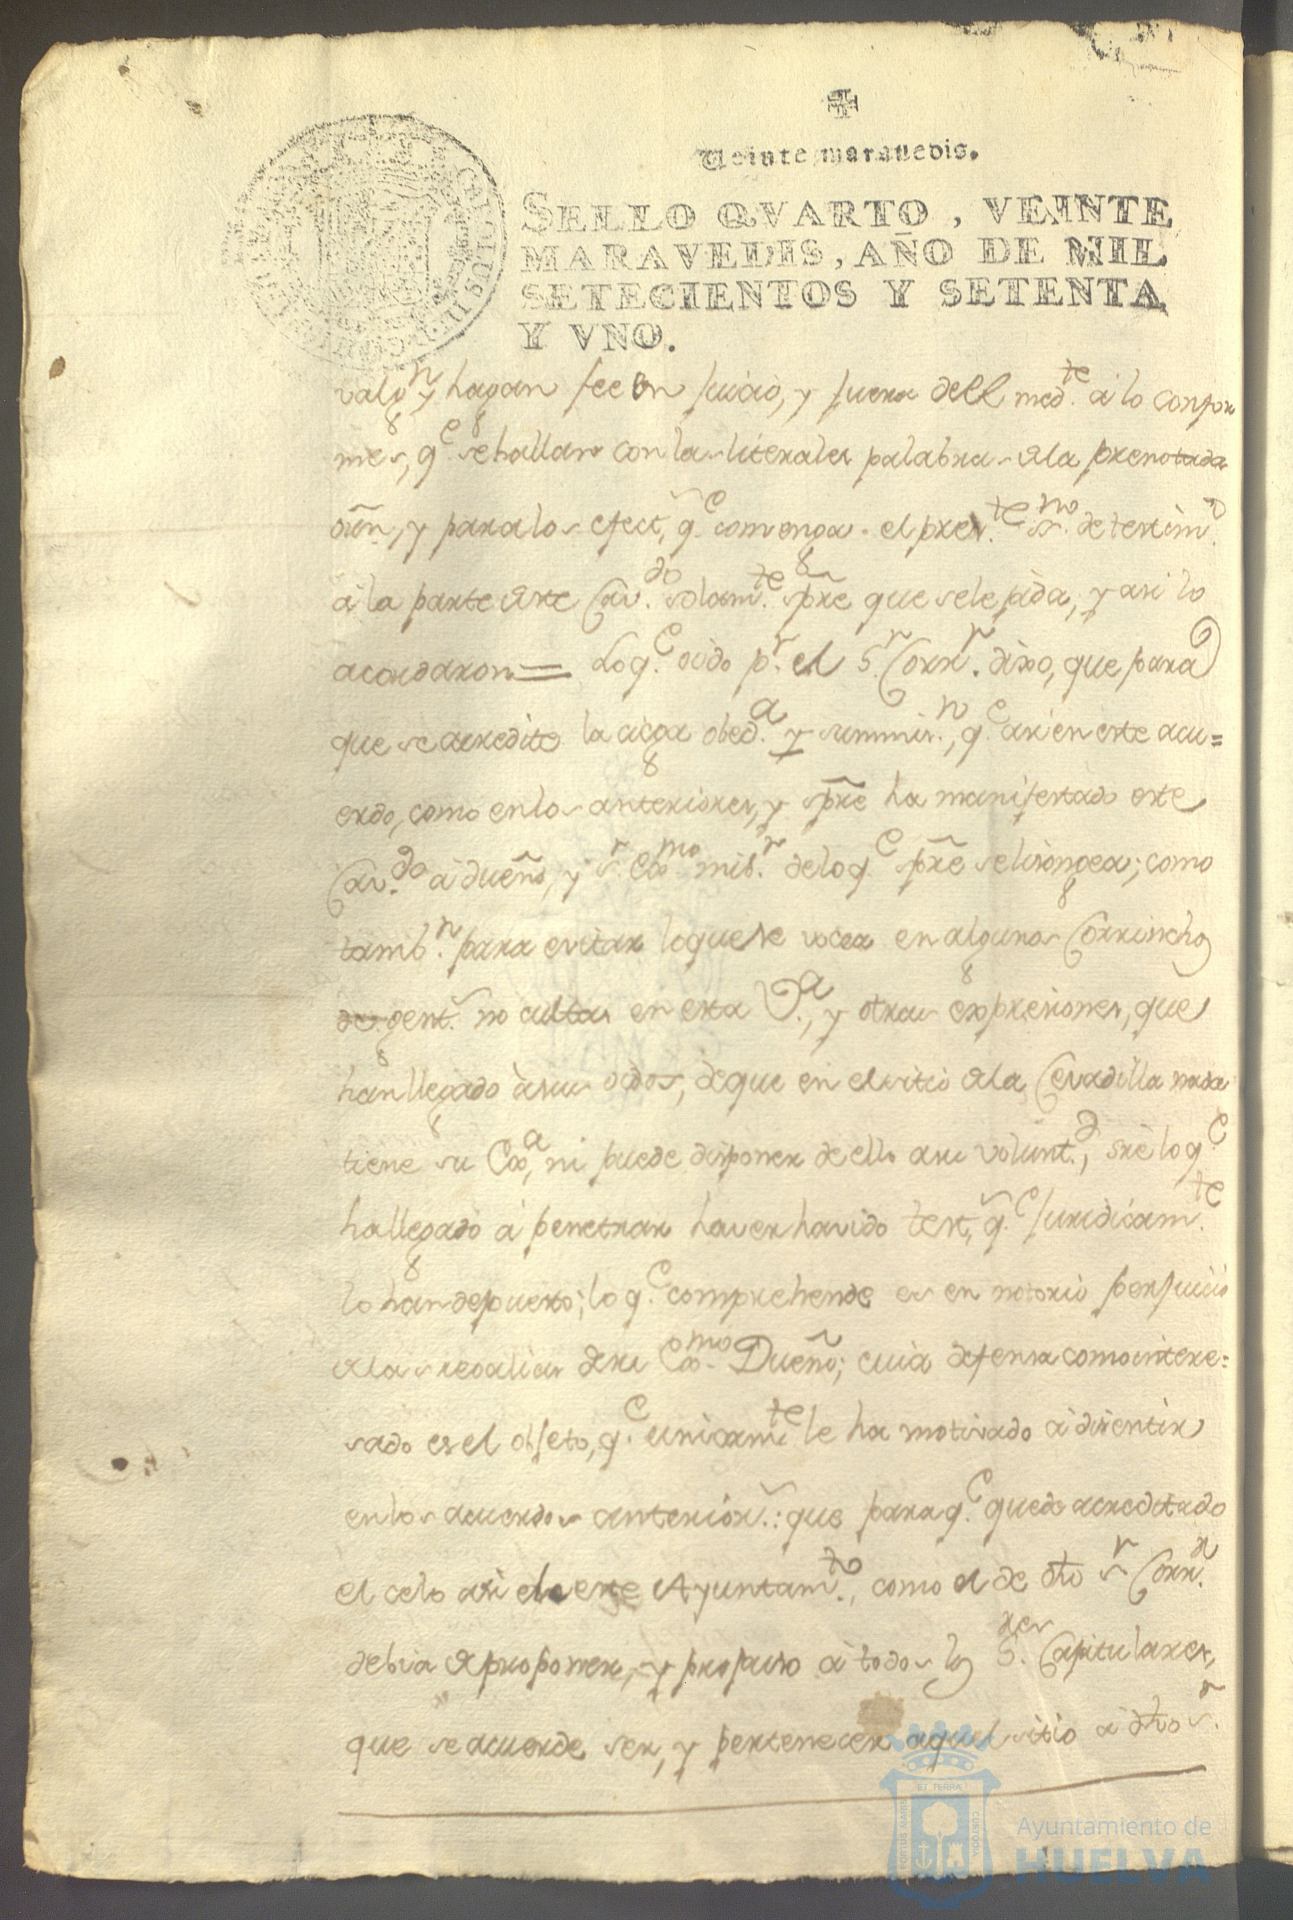 ✠
Veinte maravedis.
SELLO QVARTO, VEINTE
MARAVEDIS, AÑO DE MIL
SETECIENTOS Y SETENTA
Y VNO.
valgn y hagan fee en juicio, y fuera dell medte. à lo confor
mes, qe. se hallan con las literales palabras dela prenotada
orñ, y para los efect, qe. convenga el preste. ssno. de testimo.
à la parte deste Cavdo. solamte. spre que sele pida, y asi lo
acordaron = Lo qe. oido pr. el Sr. Corrr. dixo, que para
que se acredite la ciega obeda. y summisn., qe. asi en este acu=
erdo, como en los anteriores, y spre ha manifestado este
Cavdo. à dueño, y sr. Exmo. mior. delo qe. spre se lisongea; como
tambn. para evitar loque se vocea en algunos Corrinchos
de gent. no cultas en esta Va., y otras expresiones, que
han llegado à sus oidos, de que en el sitio dela Cevadilla nada
tiene su Exa, ni puede disponer de ello a su voluntd., sre lo qe.
ha llegado à penetrar haver havido test, qe. juridicamte.
lo han depuesto; lo qe. comprehende es en notorio perjuicio
delas regalias de su Exmo. Dueño; cuia defensa como intere=
sado es el objeto, qe. unicamte le ha motivado à disentir
en los acuerdos anterior.: que para qe. quede acreditado
el celo asi de este Ayuntamto., como el de dho sr Corrr.
debia de proponer, y propuso à todos los Sres. Capitulares,
que se acuerde ser, y pertenecer aquel sitio à dho sr.
PORTUS MARIS
ET TERRAE
CUSTODIA
Ayuntamiento de
HUELVA